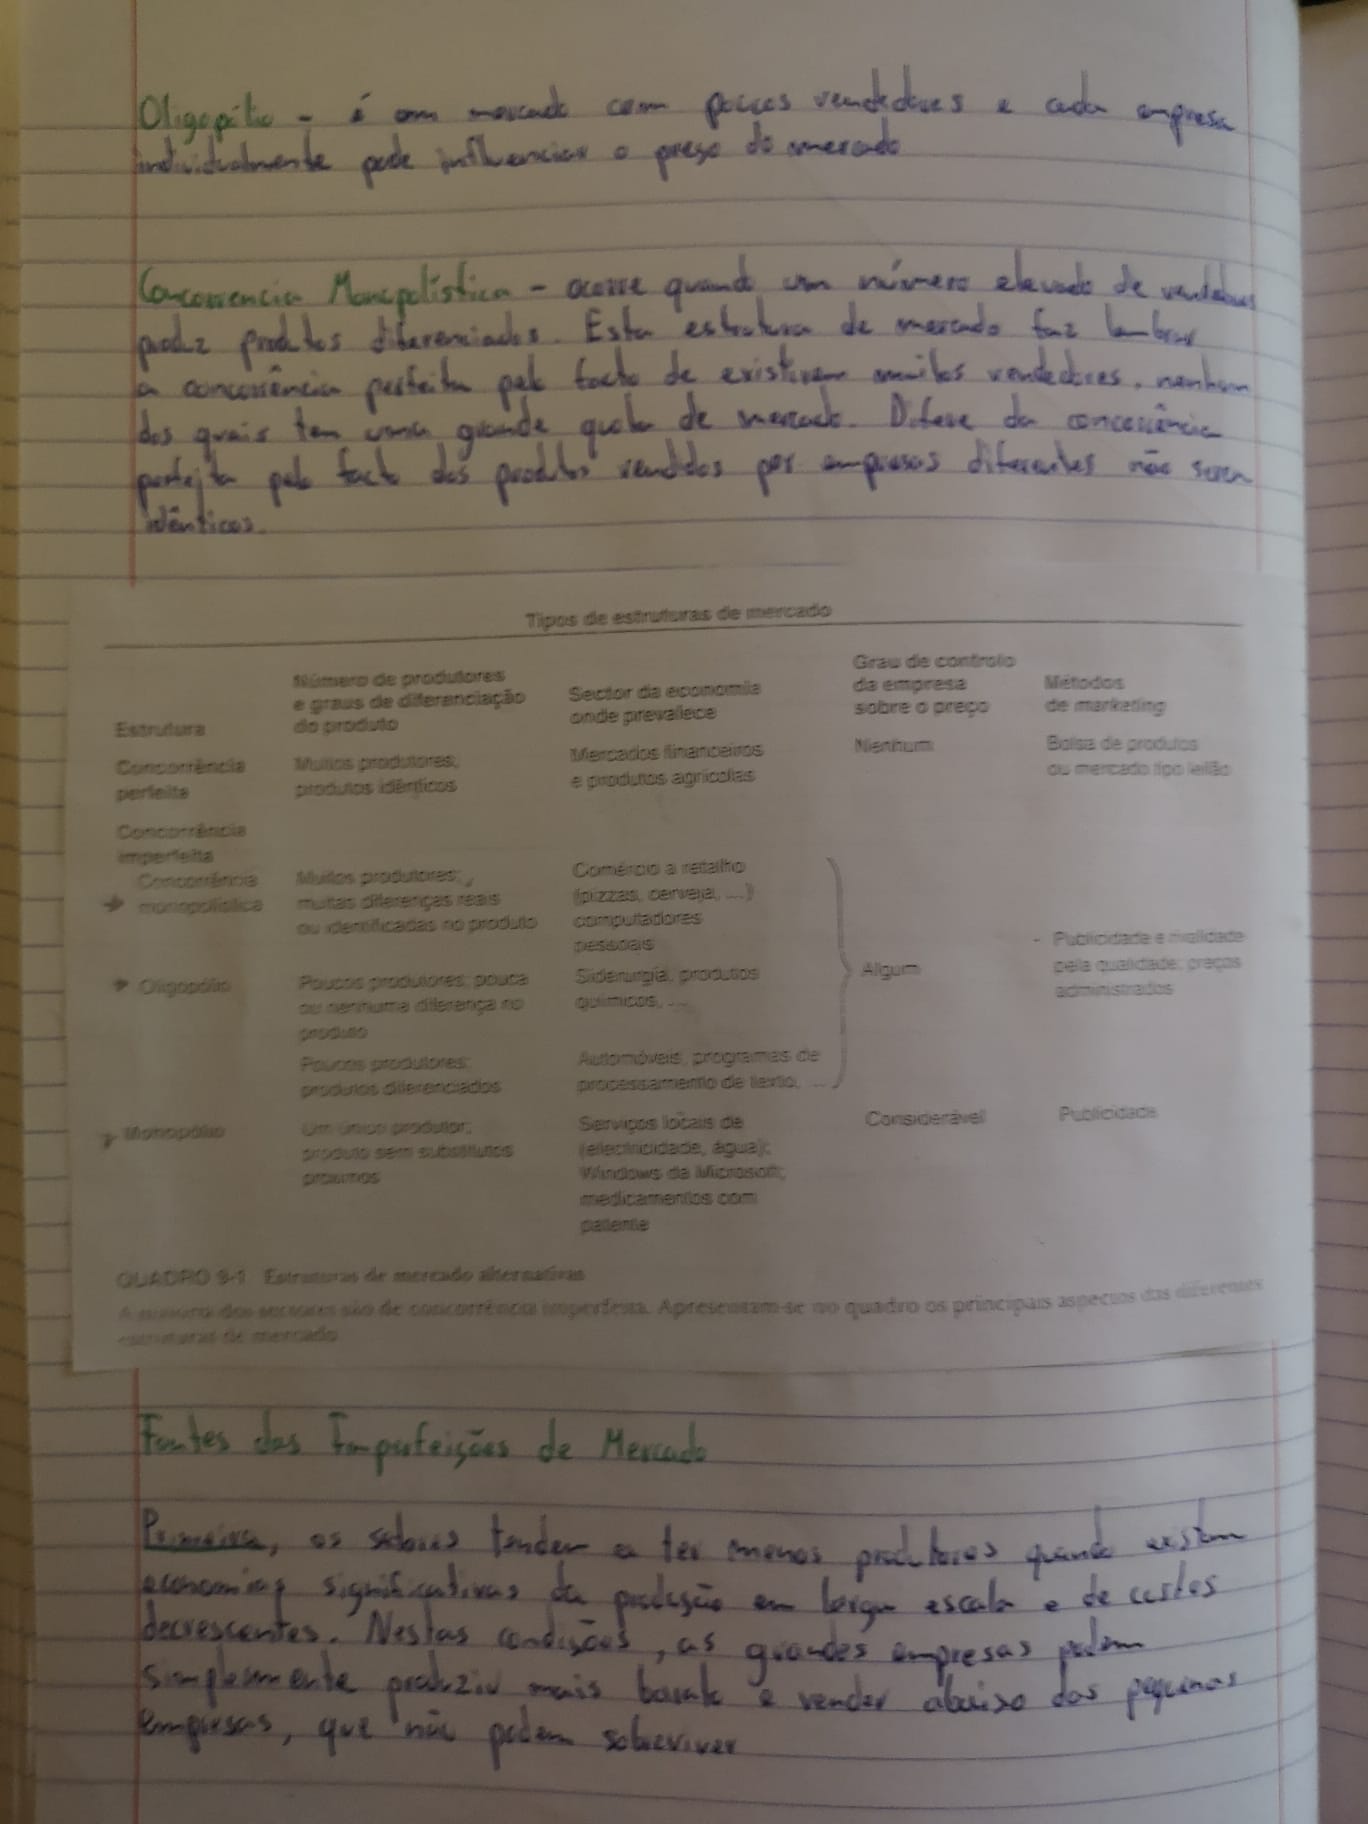 Oligopólio - é um mercado com poucos vendedores e cada empresa
individualmente pode influenciar o preço do mercado
Concorrencia Monopolística - ocorre quando um número elevado de vendedores
produz produtos diferenciados. Esta estrutura de mercado faz lembrar
a concorrência perfeita pelo facto de existirem muitos vendedores, nenhum
dos quais tem uma grande quota de mercado. Difere da concorrência
perfeita pelo facto dos produtos vendidos por empresas diferentes não serem
idênticos.
Tipos de estruturas de mercado
Estrutura
Número de produtores
e graus de diferenciação
do produto
Sector da economia
onde prevalece
Grau de controlo
da empresa
sobre o preço
Métodos
de marketing
Concorrência
perfeita
Muitos produtores;
produtos idênticos
Mercados financeiros
e produtos agrícolas
Nenhum
Bolsa de produtos
ou mercado tipo leilão
Concorrência
imperfeita
Concorrência
monopolística
Muitos produtores;
muitas diferenças reais
ou identificadas no produto
Comércio a retalho
(pizzas, cerveja, ...)
computadores
pessoais
Oligopólio
Poucos produtores; pouca
ou nenhuma diferença no
produto
Siderurgia, produtos
químicos, ...
Poucos produtores;
produtos diferenciados
Automóveis, programas de
processamento de texto, ...
Algum
- Publicidade e rivalidade
pela qualidade; preços
administrados
Monopólio
Um único produtor;
produto sem substitutos
próximos
Serviços locais de
(electricidade, água);
Windows da Microsoft;
medicamentos com
patente
Considerável
Publicidade
QUADRO 9-1 Estruturas de mercado alternativas
A maioria dos sectores são de concorrência imperfeita. Apresentam-se no quadro os principais aspectos das diferentes
estruturas de mercado
Fontes das Imperfeições de Mercado
Primeira, os setores tendem a ter menos produtores quando existem
economias significativas da produção em larga escala e de custos
decrescentes. Nestas condições, as grandes empresas podem
simplesmente produzir mais barato e vender abaixo das pequenas
empresas, que não podem sobreviver